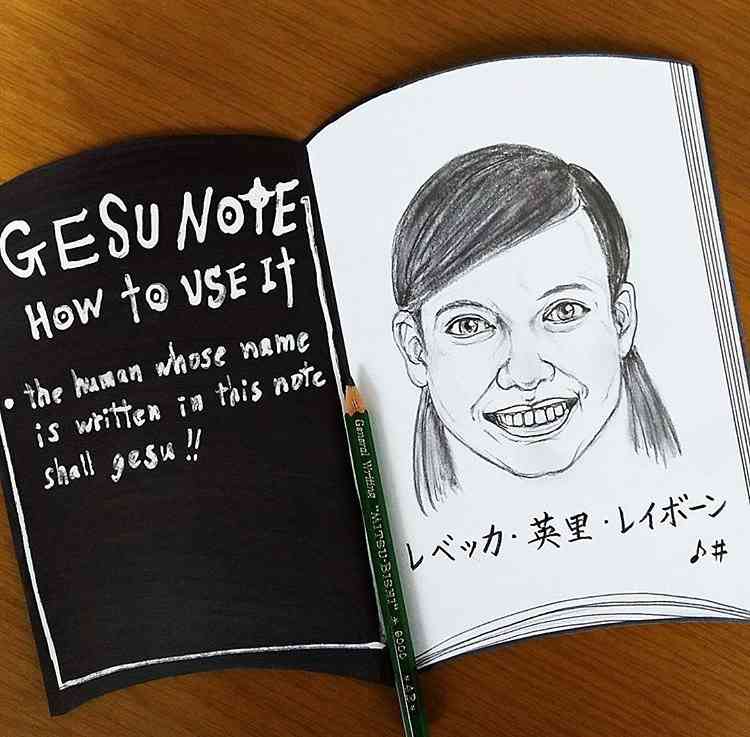 GESU NOTE
HOW TO USE It
• the human whose name
is written in this note
shall gesu!!
General Writing "MITSU-BISHI"
レベッカ・英里・レイボーン
♪#